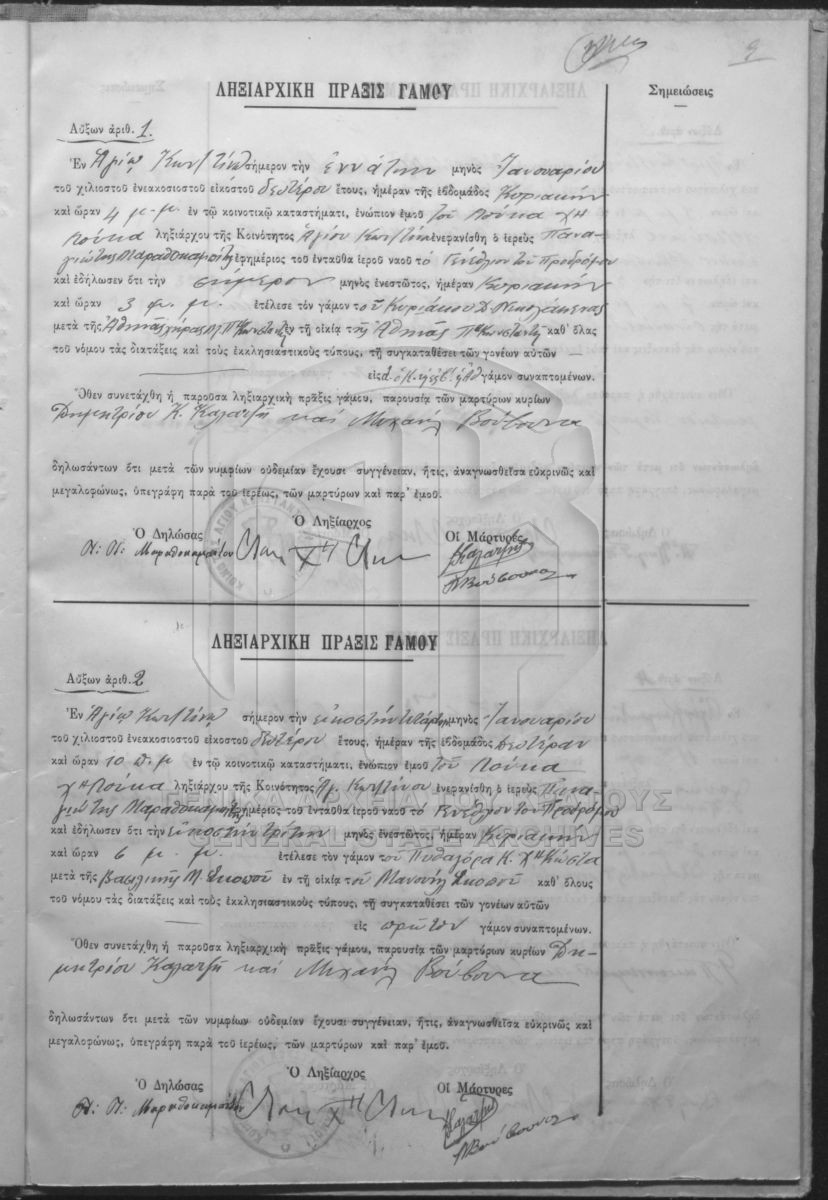 9
ΛΗΞΙΑΡΧΙΚΗ ΠΡΑΞΙΣ ΓΑΜΟΥ
Σημειώσεις
Αὔξων ἀριθ. 1.
Ἐν Ἁγίῳ Κωνστ/ίνῳ σήμερον τὴν ἐννάτην μηνὸς Ἰανουαρίου
τοῦ χιλιοστοῦ ἐνεακοσιοστοῦ εἰκοστοῦ δευτέρου ἔτους, ἡμέραν τῆς ἑβδομάδος Κυριακὴν
καὶ ὥραν 4 μ. μ. ἐν τῷ κοινοτικῷ καταστήματι, ἐνώπιον ἐμοῦ τοῦ Λουκα χη
Λουκα ληξιάρχου τῆς Κοινότητος Ἁγίου Κωνστ/ίνου ἐνεφανίσθη ὁ ἱερεὺς Πανα-
γιώτης Μαραθοκαμπίτης ἐφημέριος τοῦ ἐνταῦθα ἱεροῦ ναοῦ τὸ Γενέθλιον τοῦ Προδρόμου
καὶ ἐδήλωσεν ὅτι τὴν σήμερον μηνὸς ἐνεστῶτος, ἡμέραν Κυριακὴν
καὶ ὥραν 3 μ. μ. ἐτέλεσε τὸν γάμον τοῦ Κυριάκου Δ. Νικολάκενας
μετὰ τῆς Ἀθηνᾶς χήρας ἐν τῇ οἰκίᾳ τῆς Ἀθηνᾶς καθ' ὅλας
τοῦ νόμου τὰς διατάξεις καὶ τοὺς ἐκκλησιαστικοὺς τύπους, τῇ συγκαταθέσει τῶν γονέων αὐτῶν —
εἰς γάμον συναπτομένων.
Ὅθεν συνετάχθη ἡ παροῦσα ληξιαρχικὴ πρᾶξις γάμου, παρουσίᾳ τῶν μαρτύρων κυρίων
Δημητρίου Κ. Καλατζῆ καὶ Μιχαὴλ Βούβουνα
δηλωσάντων ὅτι μετὰ τῶν νυμφίων οὐδεμίαν ἔχουσι συγγένειαν, ἥτις, ἀναγνωσθεῖσα εὐκρινῶς καὶ
μεγαλοφώνως, ὑπεγράφη παρὰ τοῦ ἱερέως, τῶν μαρτύρων καὶ παρ' ἐμοῦ.
Ὁ Δηλώσας Ὁ Ληξίαρχος Οἱ Μάρτυρες
Π. Μαραθοκαμπίτου Λουκ Χη Λουκ Καλατζῆς
Μ Βούβουνας
ΛΗΞΙΑΡΧΙΚΗ ΠΡΑΞΙΣ ΓΑΜΟΥ
Αὔξων ἀριθ. 2
Ἐν Ἁγίῳ Κωνστ/ίνῳ σήμερον τὴν εἰκοστὴν τετάρτην μηνὸς Ἰανουαρίου
τοῦ χιλιοστοῦ ἐνεακοσιοστοῦ εἰκοστοῦ δευτέρου ἔτους, ἡμέραν τῆς ἑβδομάδος Δευτέραν
καὶ ὥραν 10 π. μ ἐν τῷ κοινοτικῷ καταστήματι, ἐνώπιον ἐμοῦ τοῦ Λουκα
χη Λουκα ληξιάρχου τῆς Κοινότητος Ἁγ. Κωνστ/ίνου ἐνεφανίσθη ὁ ἱερεὺς Πανα-
γιώτης Μαραθοκαμπίτης ἐφημέριος τοῦ ἐνταῦθα ἱεροῦ ναοῦ τὸ Γενέθλιον τοῦ Προδρόμου
καὶ ἐδήλωσεν ὅτι τὴν εἰκοστὴν τρίτην μηνὸς ἐνεστῶτος, ἡμέραν Κυριακὴν
καὶ ὥραν 6 μ. μ. ἐτέλεσε τὸν γάμον τοῦ Πυθαγόρα Κ. Χη Κώστα
μετὰ τῆς Βασιλικῆς Μ. Σκοποῦ ἐν τῇ οἰκίᾳ τοῦ Μανουὴλ Σκοποῦ καθ' ὅλους
τοῦ νόμου τὰς διατάξεις καὶ τοὺς ἐκκλησιαστικοὺς τύπους, τῇ συγκαταθέσει τῶν γονέων αὐτῶν
— εἰς πρῶτον γάμον συναπτομένων.
Ὅθεν συνετάχθη ἡ παροῦσα ληξιαρχικὴ πρᾶξις γάμου, παρουσίᾳ τῶν μαρτύρων κυρίων Δη-
μητρίου Καλατζῆ καὶ Μιχαὴλ Βούβουνα
δηλωσάντων ὅτι μετὰ τῶν νυμφίων οὐδεμίαν ἔχουσι συγγένειαν, ἥτις, ἀναγνωσθεῖσα εὐκρινῶς καὶ
μεγαλοφώνως, ὑπεγράφη παρὰ τοῦ ἱερέως, τῶν μαρτύρων καὶ παρ' ἐμοῦ.
Ὁ Δηλώσας Ὁ Ληξίαρχος Οἱ Μάρτυρες
Π. Μαραθοκαμπίτου Λουκ Χη Λουκ Καλατζῆς
Μ Βούβουνας
ΓΕΝΙΚΑ ΑΡΧΕΙΑ ΤΟΥ ΚΡΑΤΟΥΣ
GENERAL STATE ARCHIVES